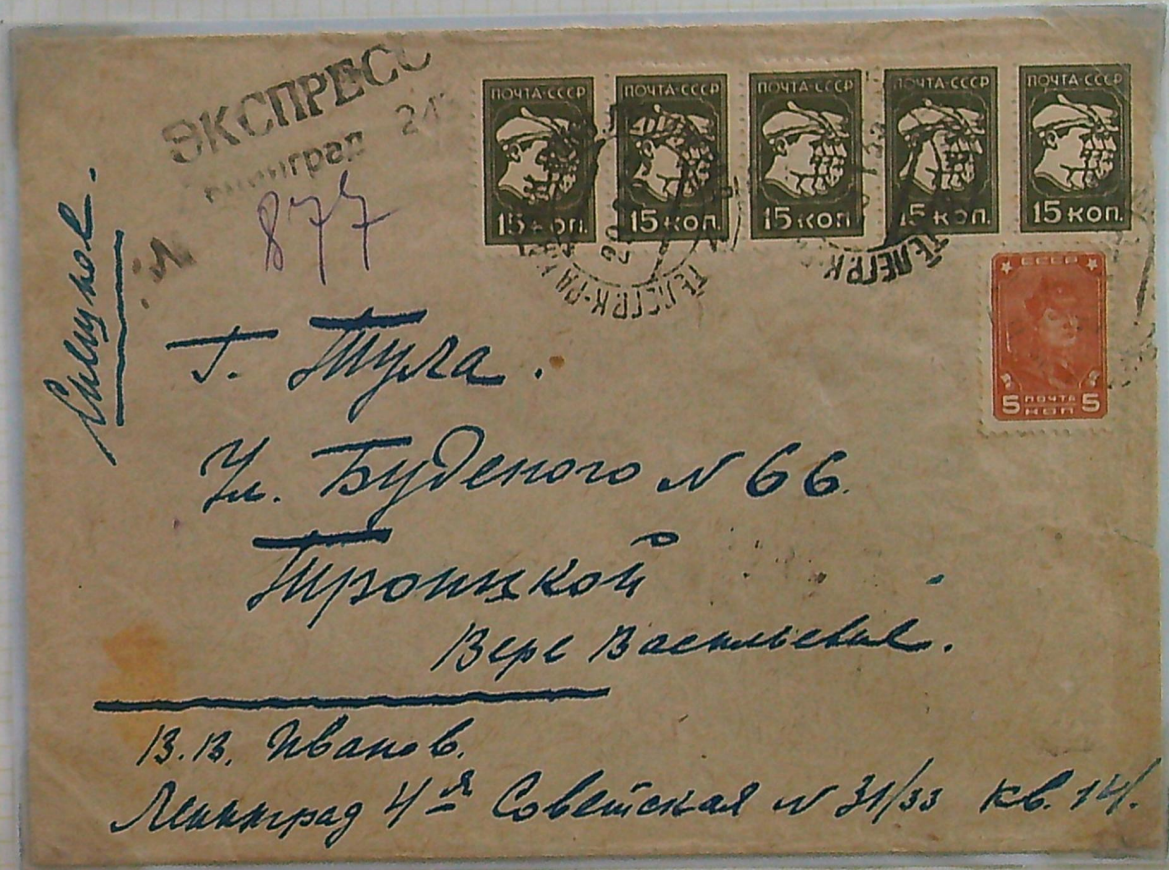 ЭКСПРЕСС
Ленинград 21
877
Спешное.
ПОЧТА·СССР
15 КОП.
ПОЧТА·СССР
15 КОП.
ПОЧТА·СССР
15 КОП.
ПОЧТА·СССР
15 КОП.
ПОЧТА·СССР
15 КОП.
СССР
5 ПОЧТА 5
КОП
г. Тула.
Ул. Буденого N 66.
Троицкой
Вере Васильевне.
В.В. Иванов.
Ленинград 4я Советская N 31/33 кв. 14.